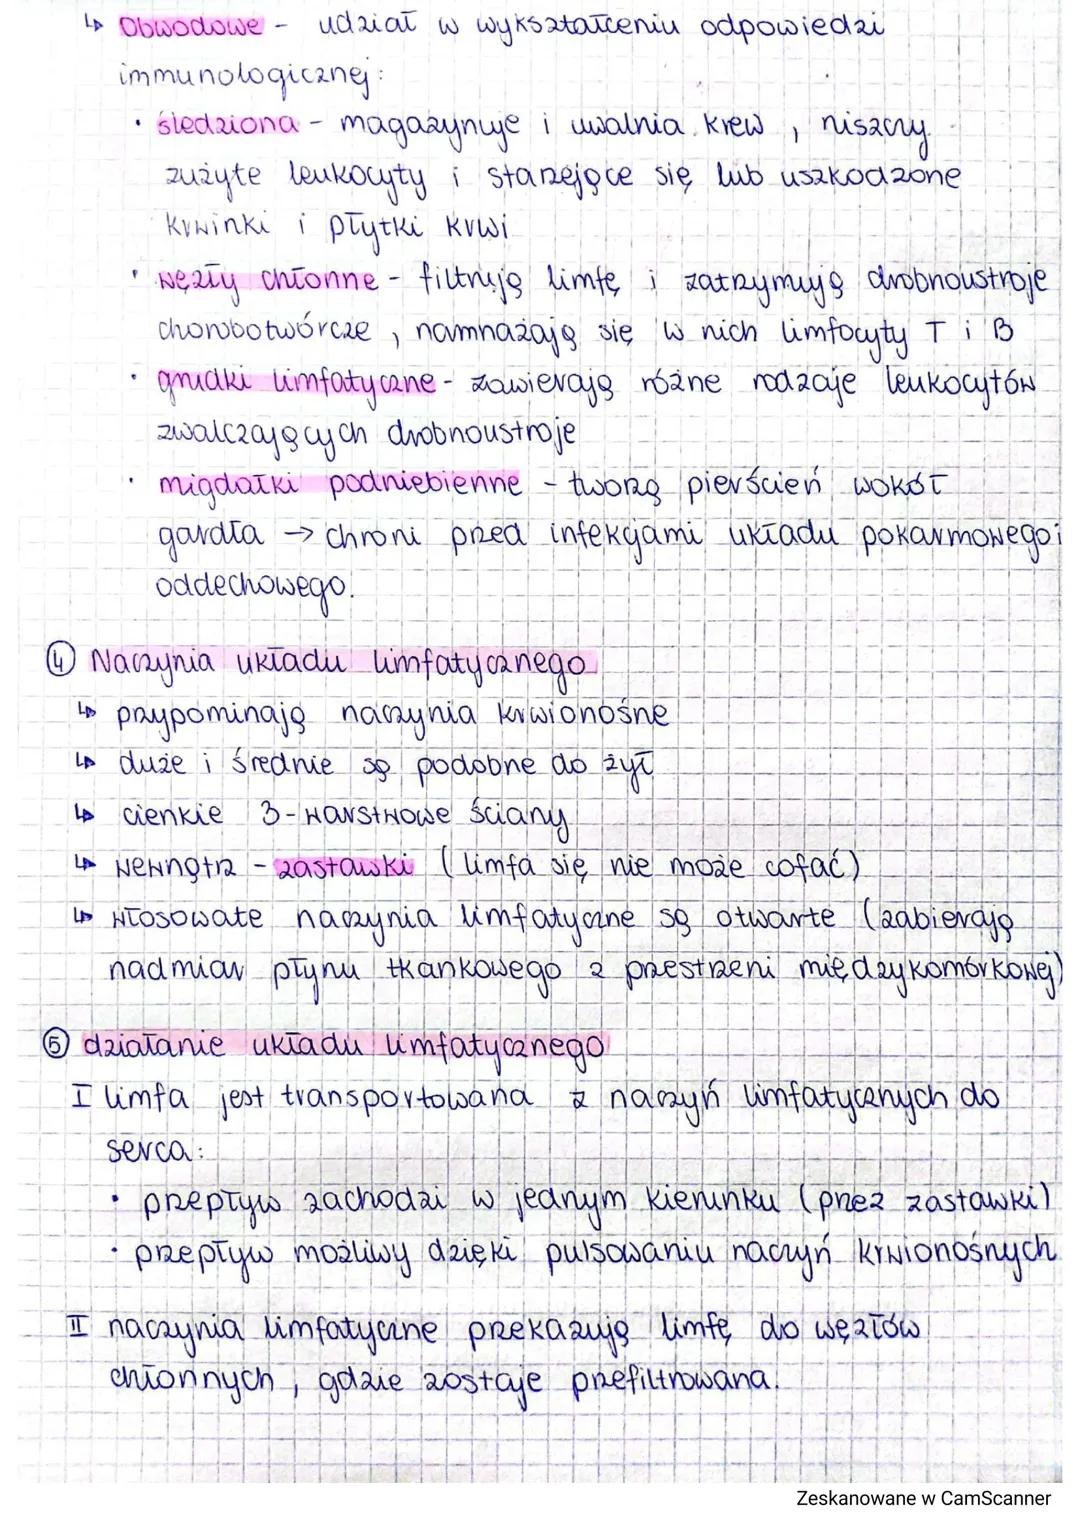 ↳ Obwodowe - udział w wykształceniu odpowiedzi
immunologicznej:
• śledziona - magazynuje i uwalnia krew, niszczy
zużyte leukocyty i starzejące się lub uszkodzone
krwinki i płytki krwi
• węzły chłonne - filtrują limfę i zatrzymują drobnoustroje
chorobotwórcze, namnażają się w nich limfocyty T i B
• grudki limfatyczne - zawierają różne rodzaje leukocytów
zwalczających drobnoustroje
• migdałki podniebienne - tworzą pierścień wokół
gardła → chroni przed infekcjami układu pokarmowego i
oddechowego.
④ Naczynia układu limfatycznego
↳ przypominają naczynia krwionośne
↳ duże i średnie są podobne do żył
↳ cienkie 3-warstwowe ściany
↳ wewnątrz - zastawki (limfa się nie może cofać)
↳ włosowate naczynia limfatyczne są otwarte (zabierają
nadmiar płynu tkankowego z przestrzeni międzykomórkowej)
⑤ działanie układu limfatycznego
I limfa jest transportowana z naczyń limfatycznych do
serca:
• przepływ zachodzi w jednym kierunku (przez zastawki)
• przepływ możliwy dzięki pulsowaniu naczyń krwionośnych
II naczynia limfatyczne przekazują limfę do węzłów
chłonnych, gdzie zostaje przefiltrowana.
Zeskanowane w CamScanner